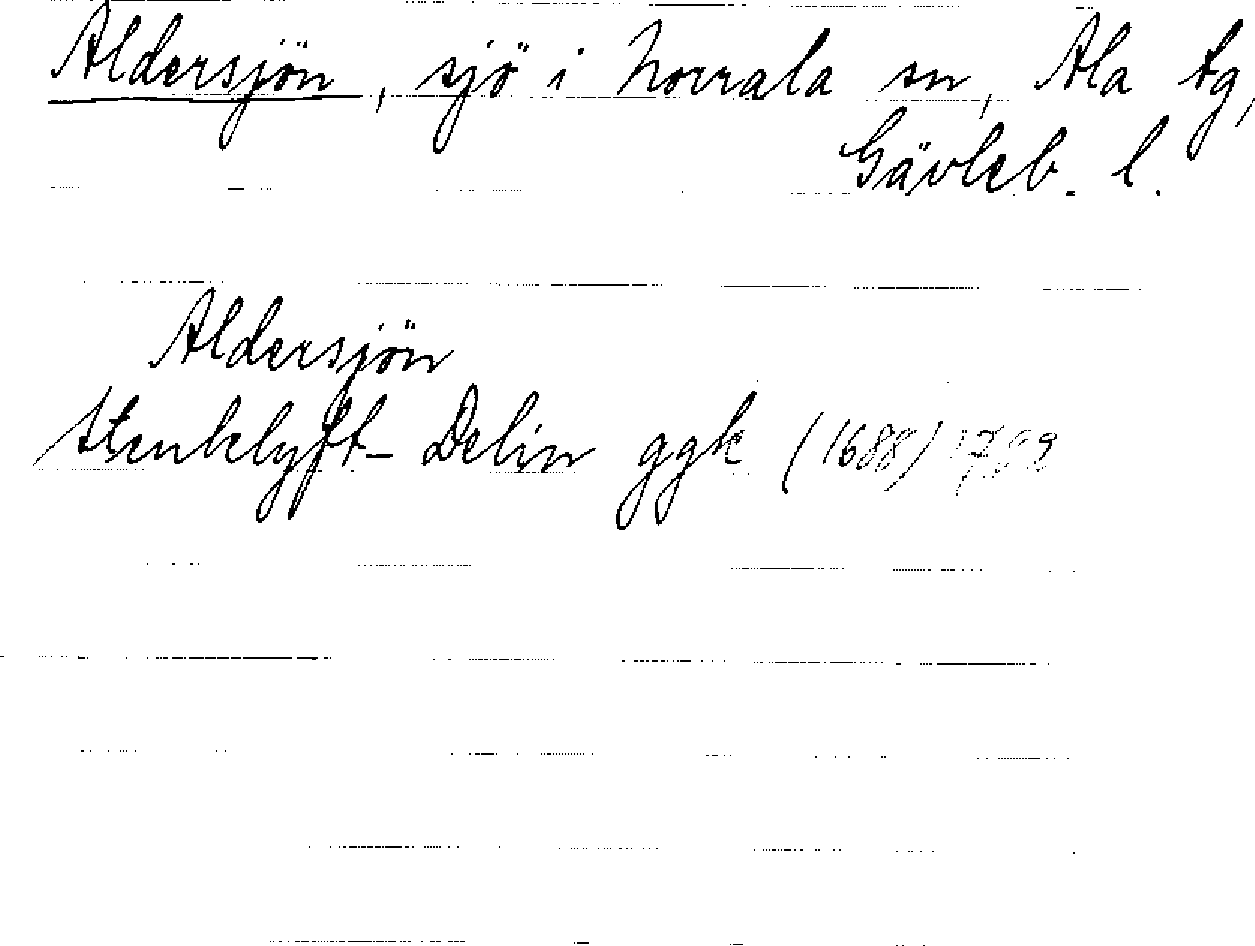 Aldersjön, sjö i Norrala sn, Ala tg,
Gävleb. l.
Aldersjön
Stenklyft- Delin ggk (1688) 1709